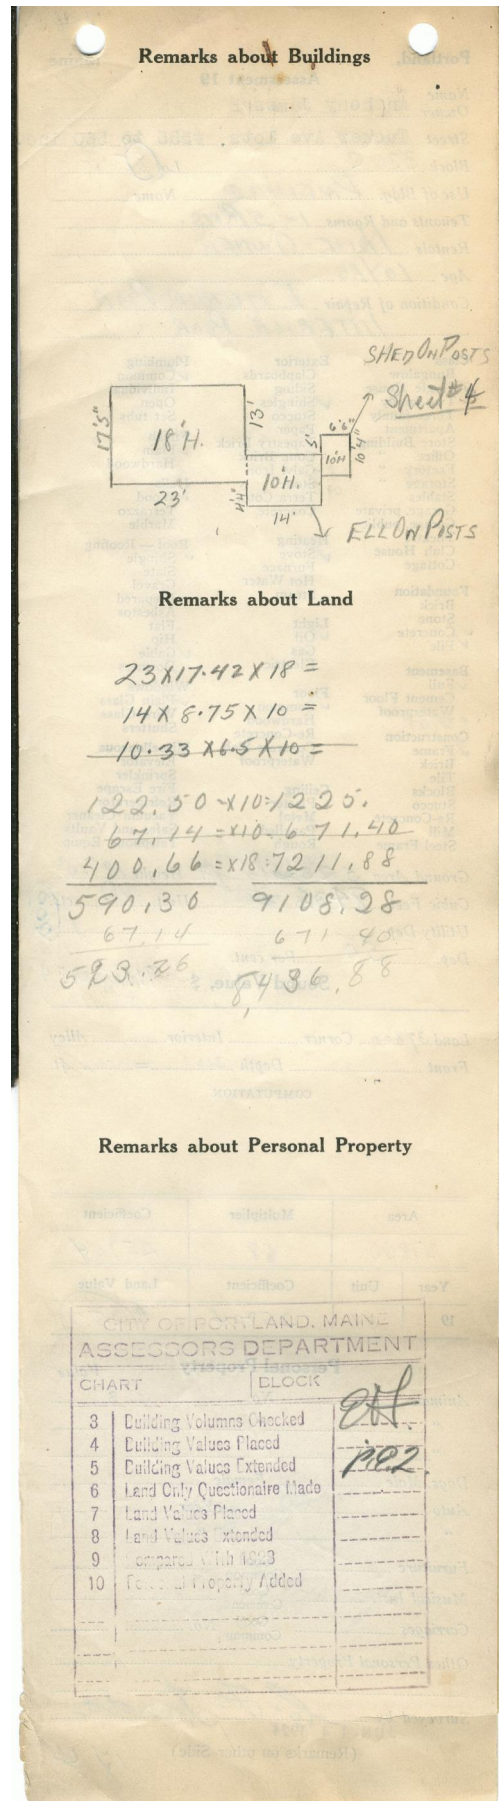 Remarks about Buildings
SHED ON POSTS
Sheet #4
17'5"
18'H.
13'
5'
6'6"
10'H
10'4"
10'H.
4'4"
23'
14'
ELL ON POSTS
Remarks about Land
23 X 17.42 X 18 =
14 X 8.75 X 10 =
10.33 X 6.5 X 10 =
122.50 - X10 = 1225.
67.14 = X10 - 671.40
400.66 = X18 = 7211.88
590.30 9108.28
67.14 671 40
523.26 8,436.88
Remarks about Personal Property
CITY OF PORTLAND, MAINE
ASSESSORS DEPARTMENT
CHART BLOCK
3 Building Volumns Checked
4 Building Values Placed
5 Building Values Extended
6 Land Only Questionaire Made
7 Land Values Placed
8 Land Values Extended
9 Compared With 1923
10 Personal Property Added